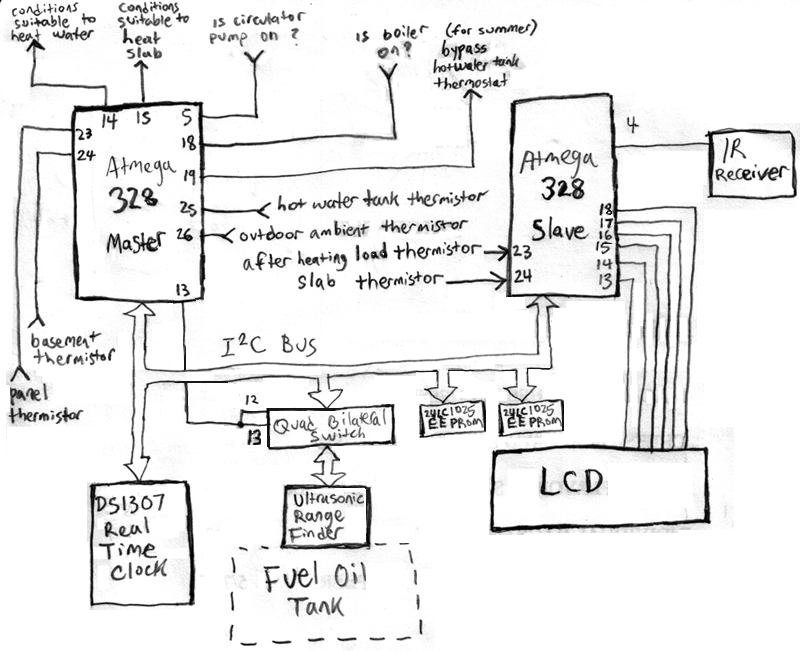 conditions
suitable to
heat water
conditions
suitable to
heat
slab
is circulator
pump on?
is boiler
on?
(for summer)
bypass
hotwater tank
thermostat
14
15
5
23
24
18
19
25
26
13
Atmega
328
Master
hot water tank thermistor
outdoor ambient thermistor
after heating load thermistor
slab thermistor
Atmega
328
Slave
4
18
17
16
15
14
13
23
24
IR
Receiver
basement
thermistor
panel
thermistor
I²C BUS
12
13
Quad Bilateral
Switch
24LC1025
EEPROM
24LC1025
EEPROM
LCD
DS1307
Real
Time
Clock
Ultrasonic
Range
Finder
Fuel Oil
Tank